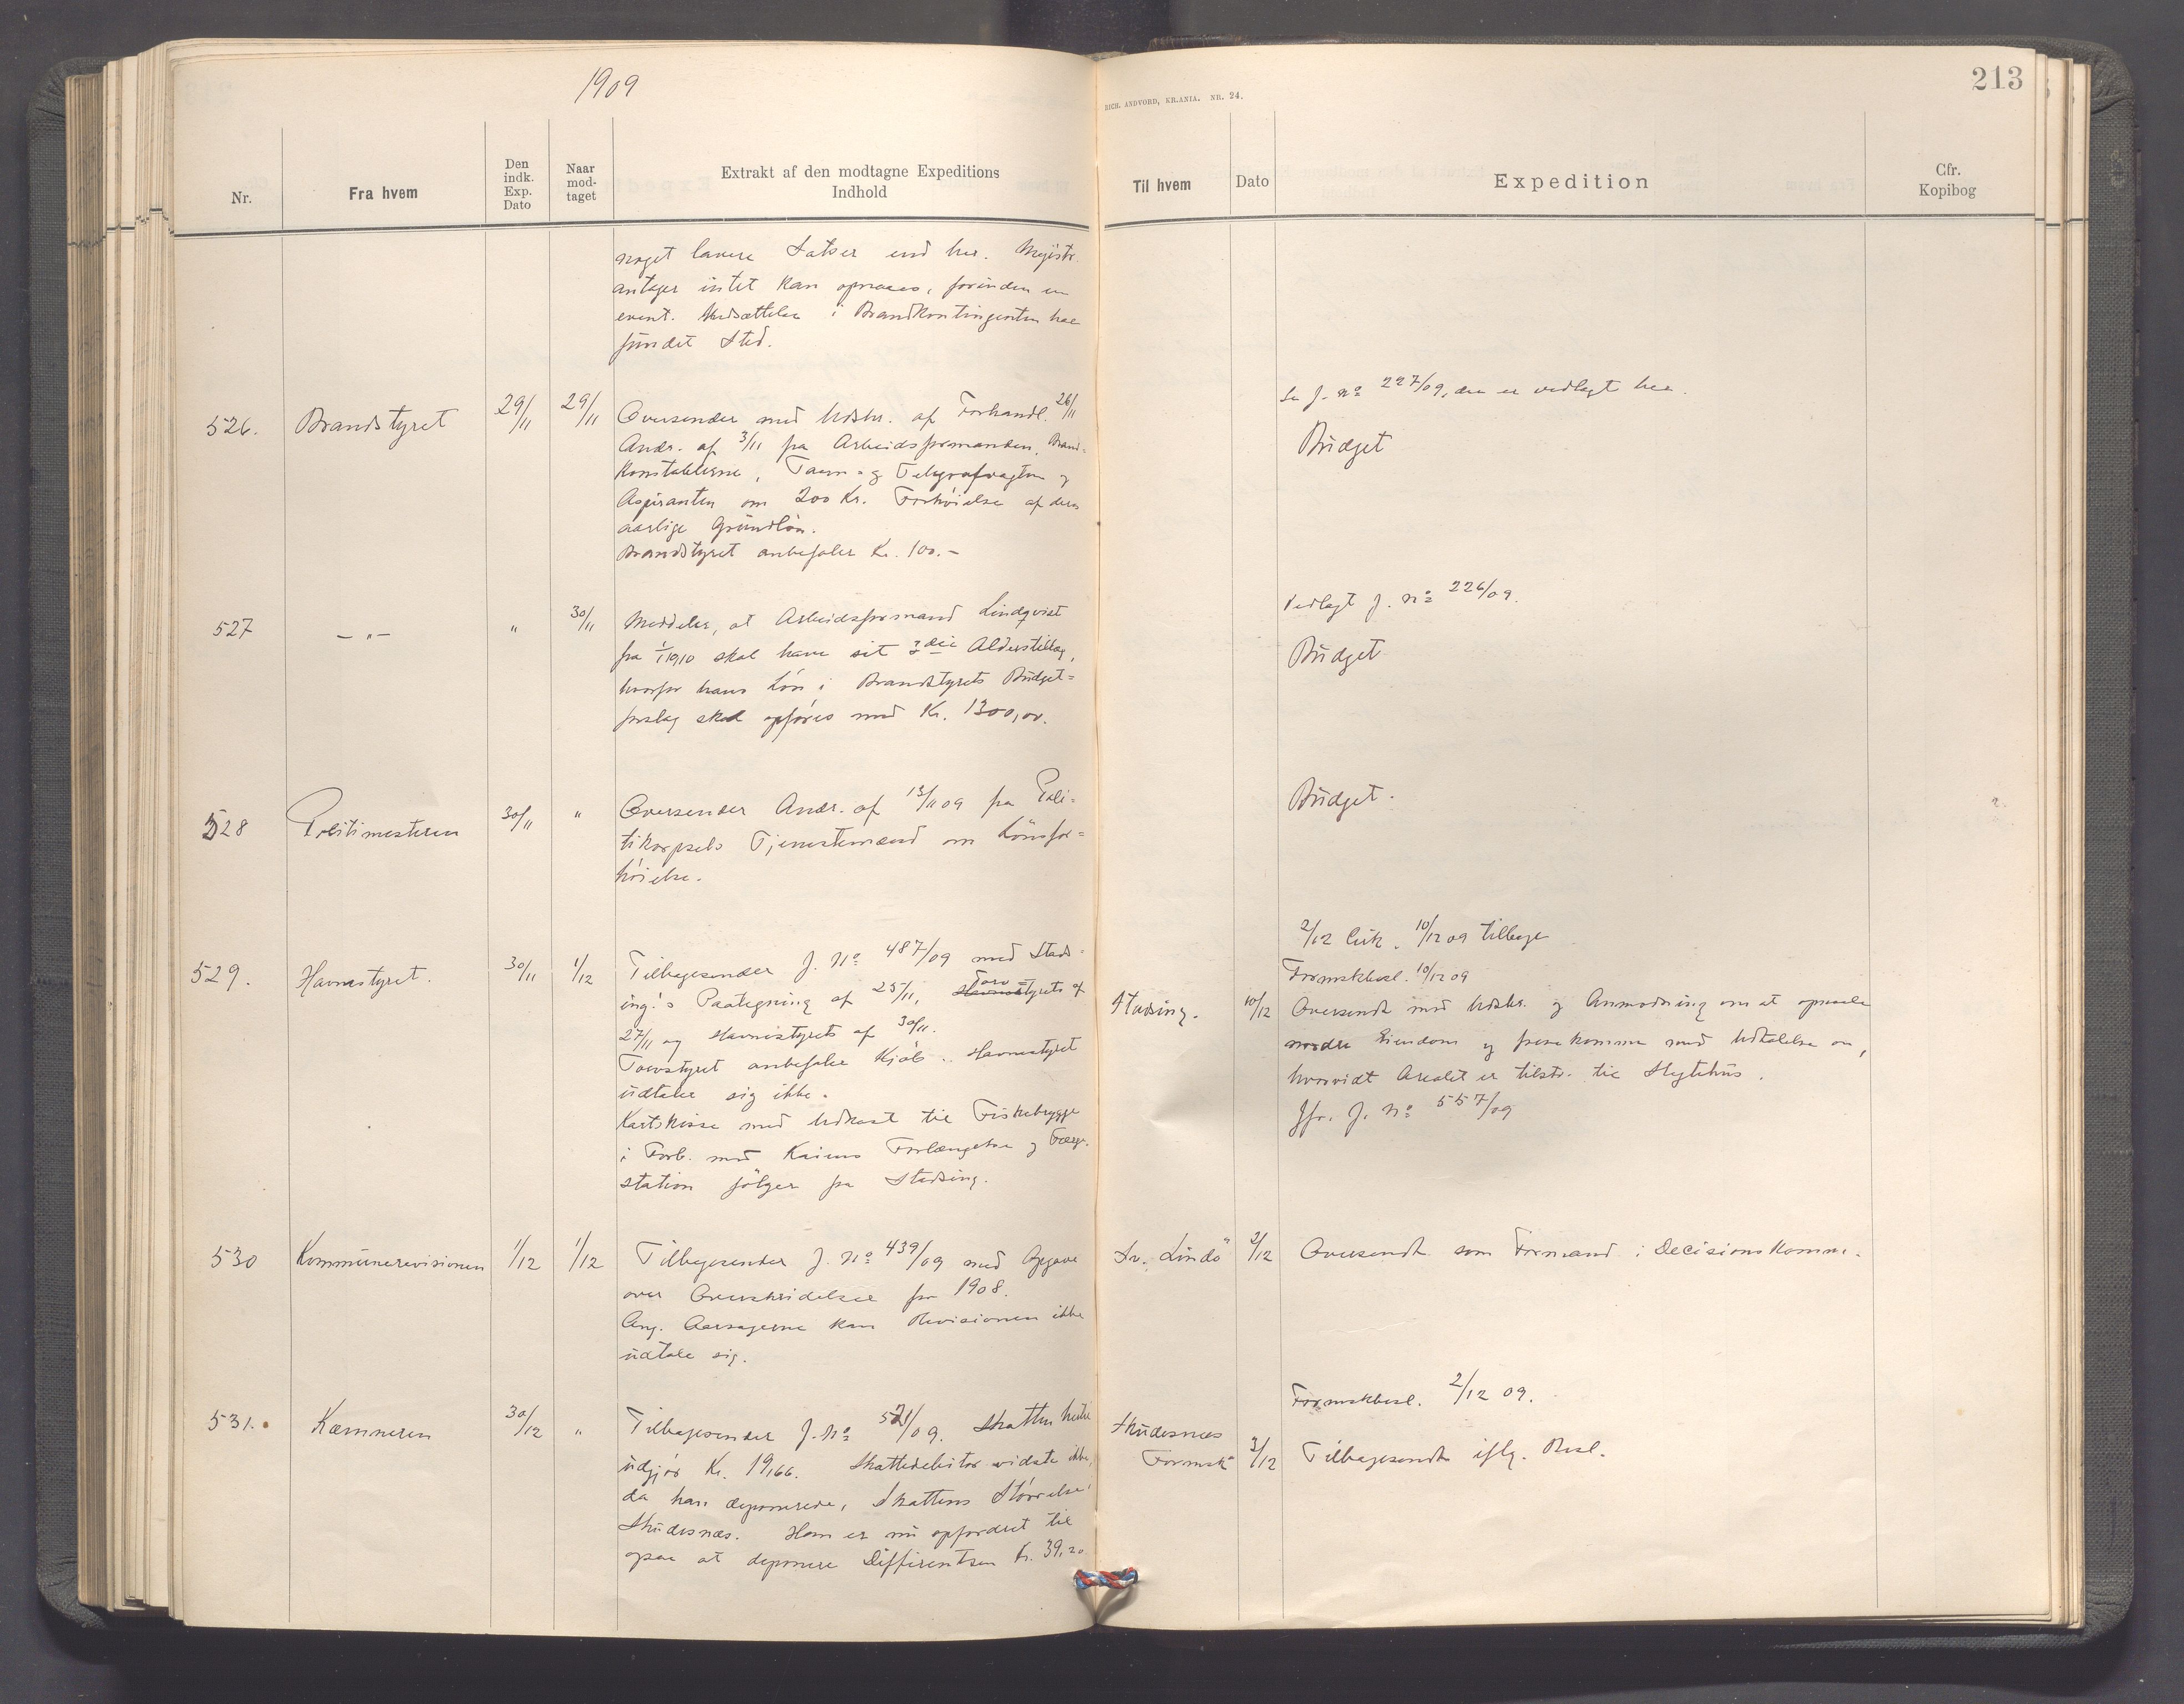 1909
Nr.
Fra hvem
Den
indk.
Exp.
Dato
Naar
mod-
taget
Extrakt af den modtagne Expeditions
Indhold
noget lavere Satser end her. Magistr.
antager intet kan opnaaes, forinden en
event. Nedsættelse i Brandkontingenten har
fundet Sted.
526. Brandstyret 29/11 29/11 Oversender med Udskr. af Forhandl. 26/11
Andr. af 3/11 fra Arbeidsformanden, Brand=
konstablerne, Taarn- og Telegrafvagten og
Aspiranten om 200 Kr. Forhöielse af deres
aarlige Grundlön.
Brandstyret anbefaler Kr. 100.-
527 - " - " 30/11 Meddeler, at Arbeidsformand Lindqvist
fra 1/1 1910 skal have sit 3die Alderstillæg,
hvorfor hans Lön i Brandstyrets Budget=
forslag skal opföres med Kr. 1300,00.
528 Politimesteren 30/11 " Oversender Andr. af 13/11 09 fra Poli=
tikorpsets Tjenestemænd om Lönsfor=
höielse.
529. Havnestyret. 30/11 1/12 Tilbagesender J. No 487/09 med Stads=
ing.'s Paategning af 25/11, Havnestyrets Torv= af
27/11 og Havnestyrets af 30/11.
Torvstyret anbefaler Kjöb. Havnestyret
udtaler sig ikke.
Kartskisse med Udkast til Fiskebrygge
i Forb. med Kaiens Forlængelse og Færge-
station fölger fra Stadsing.
530 Kommunerevisionen 1/12 1/12 Tilbagesender J. No 439/09 med Opgave
over Overskridelser for 1908.
Ang. Aarsagerne kan Revisionen ikke
udtale sig.
531. Kæmneren 30/12 " Tilbagesender J. No 521/09. Skatten
udgjör Kr. 19,66. Skattedebitor vidste ikke,
da han deponerede, Skattens Störrelse i
Skudesnæs. Han er nu opfordret til
ogsaa at deponere Differentsen Kr. 39,20
RICH. ANDVORD, KR.ANIA. NR. 24.
213
Til hvem
Dato
Expedition
Cfr.
Kopibog
Se J. No 227/09, der er vedlagt her.
Budget
Vedlagt J. No 226/09.
Budget
Budget.
2/12 Cirk. 10/12 09 tilbage
Formskbesl. 10/12 09
Stadsing. 10/12 Oversendt med Udskr. og Anmodning om at opmaale
nordre Eiendom og fremkomme med Udtalelse om,
hvorvidt Arealet er tilstr. til Slagtehus.
Jfr. J. No 557/09
Sv. Lindö 2/12 Oversendt som Formand i Decisionskomm.
Formskbesl. 2/12 09.
Skudesnæs
Formsk. 3/12 Tilbagesendt iflg. Besl.